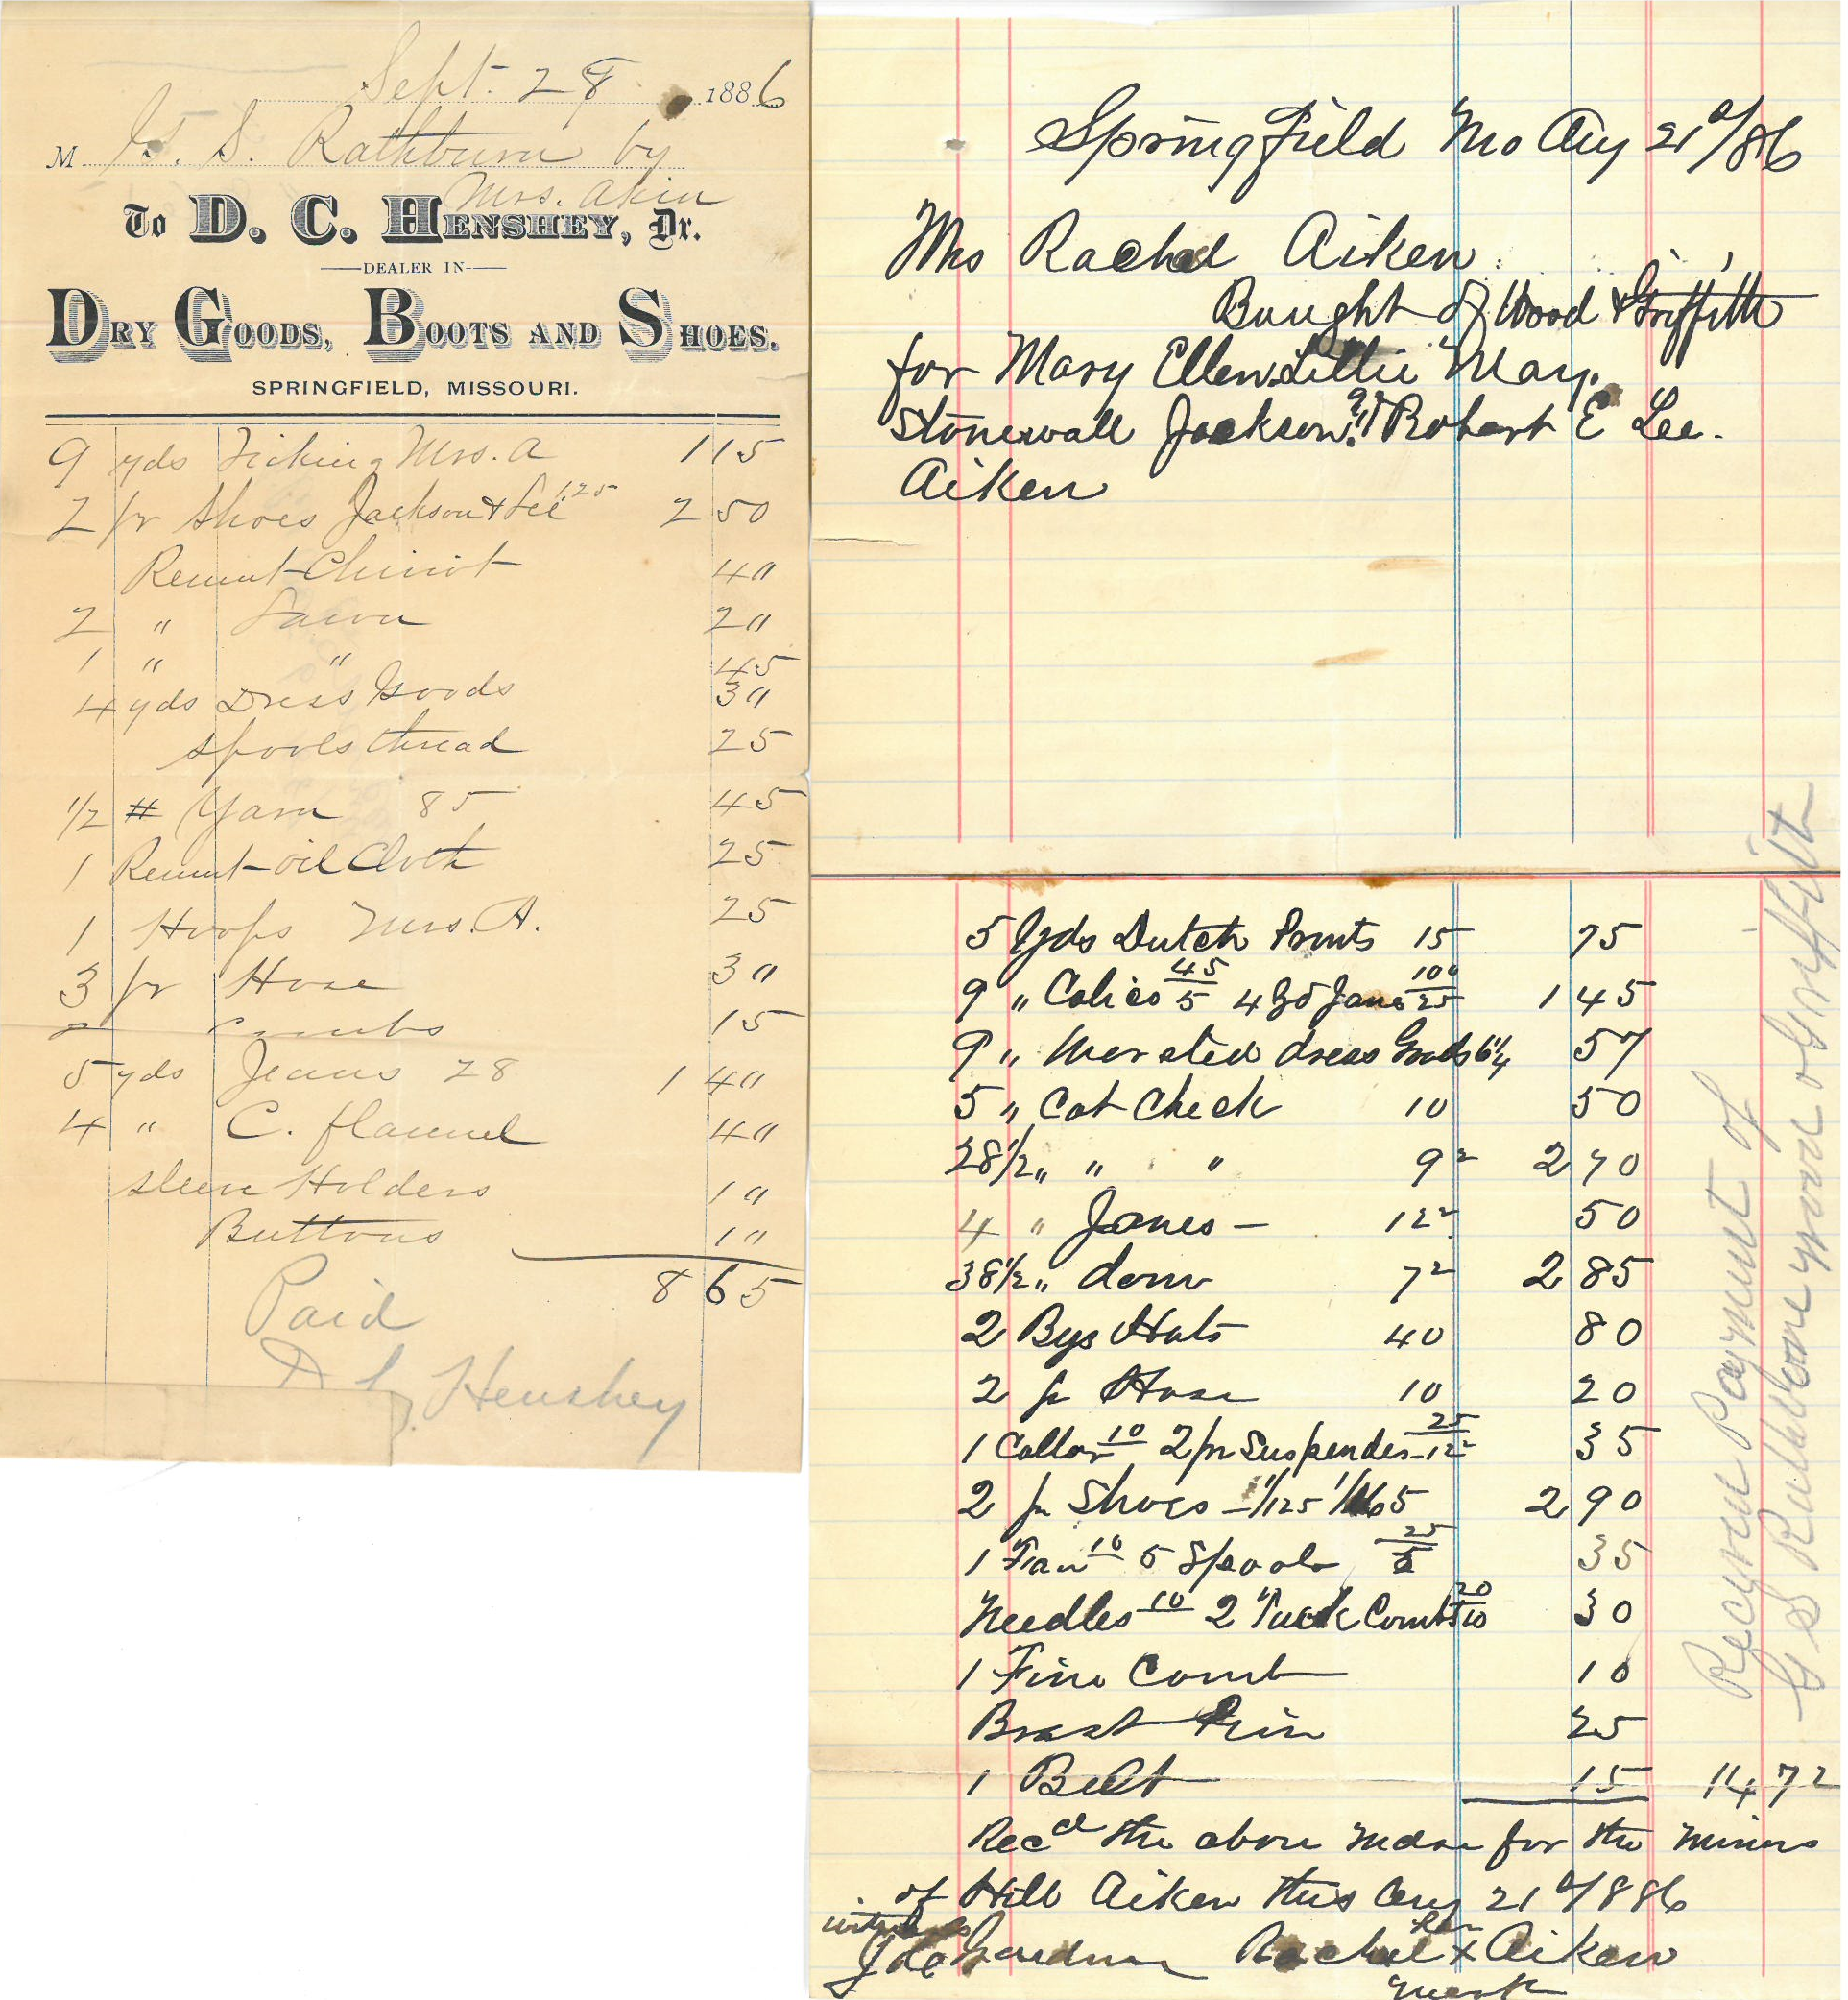 Sept. 28 1886
M G. S. Rathburn by
Mrs. Akin
To D. C. HENSHEY, Dr.
DEALER IN
DRY GOODS, BOOTS AND SHOES.
SPRINGFIELD, MISSOURI.
9 yds Ticking Mrs. A 1 15
2 pr Shoes Jackson & Lee 1 25 2 50
Remnt Cheviot 40
2 " Lawn 20
1 " " 45
4 yds Dress Goods 30
spools thread 25
1/2 # Yarn 85 45
1 Remnt oil Cloth 25
1 Hoops Mrs. A. 25
3 pr Hose 30
2 combs 15
5 yds Jeans 28 1 40
4 " C. flannel 40
sleeve Holders 10
Buttons 10
8 65
Paid
D C Henshey
Springfield Mo Aug 21st/86
Mrs Rachel Aiken
Bought of Wood & Griffith
for Mary Ellen, Lillie May,
Stonewall Jackson, & Robert E Lee.
Aiken
5 Yds Dutch Prints 15 75
9 " Calico 45/5 4 Yd Janes 100/25 1 45
9 " Worsted dress Goods 6 1/4 57
5 " Cot Check 10 50
28 1/2 " " " 9 2 2 70
4 " Janes - 12 2 50
38 1/2 " dom 7 2 2 85
2 Bys Hats 40 80
2 pr Hose 10 20
1 Collar 10 2 pr Suspender 25/12 2 35
2 pr Shoes - 1/125 1/165 2 90
1 Fan 10 5 Spools 25/5 35
Needles 10 2 Tuck Combs 20/10 30
1 Fine Comb 10
Brast Pin 25
1 Belt 15 14 72
Recd the above mdse for the minors
of Hill Aiken this Aug 21st/886
witness her
J De Gardner Rachel x Aiken
mark
Recyved Payment of
G S Rathbone Wood & Griffith